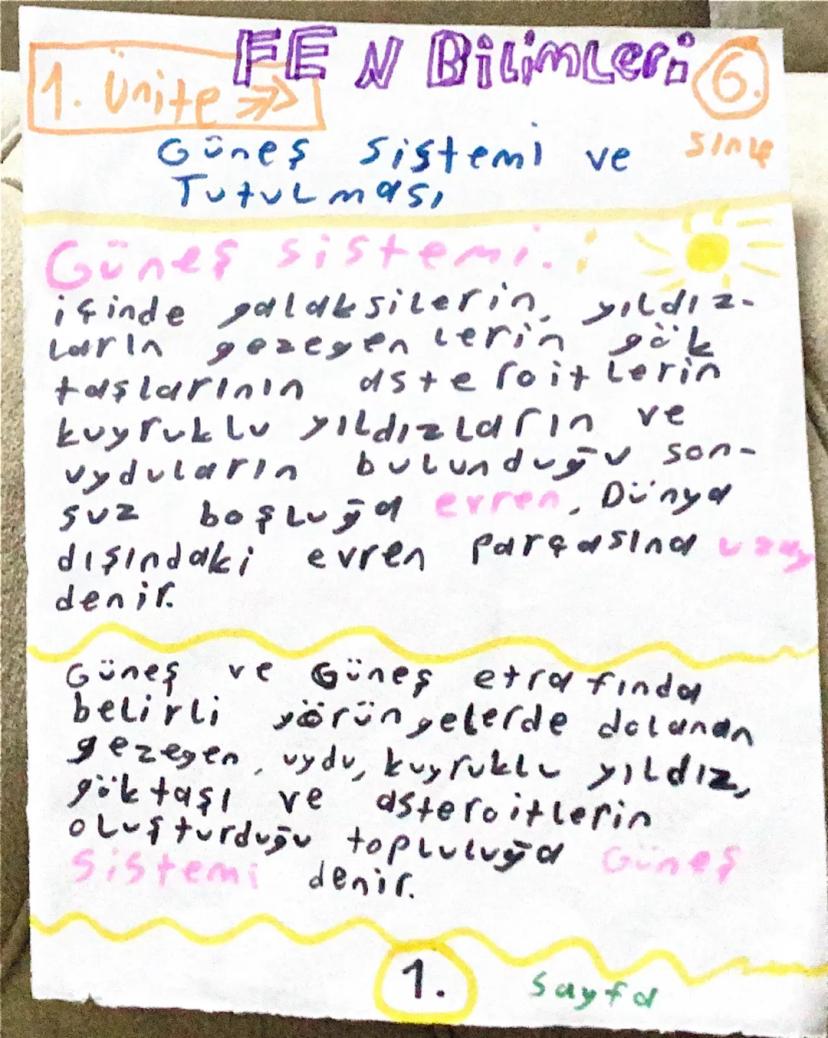 FEN Bilimleri
1. Ünite
6.
sınıf
Güneş sistemi ve
Tutulması
Güneş sistemi:
içinde galaksilerin, yıldız-
ların gezegenlerin gök
taşlarının asteroitlerin
kuyruklu yıldızların ve
uyduların bulunduğu son-
suz boşluğa evren, Dünya
dışındaki evren parçasına uzay
denir.
Güneş ve Güneş etrafında
belirli yörüngelerde dolanan
gezegen, uydu, kuyruklu yıldız,
göktaşı ve asteroitlerin
oluşturduğu topluluğa Güneş
sistemi denir.
1. sayfa